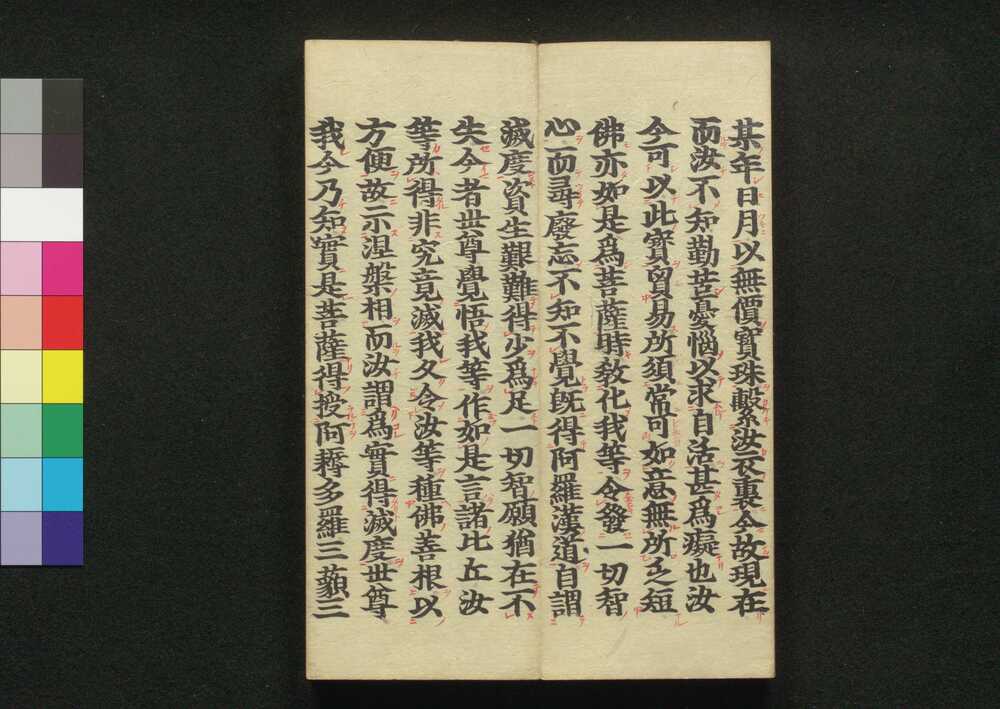 某年日月以無價寶珠繫汝衣裏今故現在
而汝不知勤苦憂惱以求自活甚爲癡也汝
今可以此寶貿易所須常可如意無所乏短
佛亦如是爲菩薩時敎化我等令發一切智
心而尋廢忘不知不覺旣得阿羅漢道自謂
滅度資生艱難得少爲足一切智願猶在不
失今者世尊覺悟我等作如是言諸比丘汝
等所得非究竟滅我久令汝等種佛善根以
方便故示涅槃相而汝謂爲實得滅度世尊
我今乃知實是菩薩得授阿耨多羅三藐三